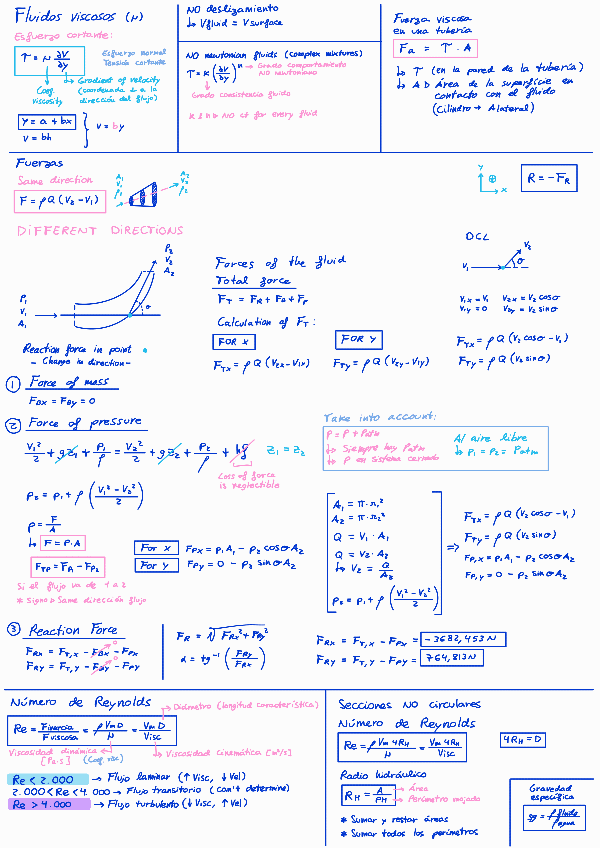 Fluidos viscosos (μ)
Esfuerzo cortante:
τ = μ ∂V/∂y
Esfuerzo normal
Tensión cortante
Gradient of velocity
(coordenada ⊥ a la
dirección del flujo)
Coef.
viscosity
y = a + bx
v = bh
v = by
NO deslizamiento
↳ Vfluid = Vsurface
NO newtonian fluids (complex mixtures)
τ = K (∂V/∂y)^n
Grado comportamiento
NO newtoniano
Grado consistencia fluido
NO ct for every fluid
Fuerza viscosa
en una tubería
Fa = τ · A
↳ τ (en la pared de la tubería)
↳ A ▷ Área de la superficie en
contacto con el fluido
(Cilindro → Alateral)
Fuerzas
Same direction
F = ρ Q (V2 - V1)
A1
V1
P1
A2
V2
P2
Y
X
R = -FR
DIFFERENT DIRECTIONS
P2
V2
A2
P1
V1
A1
σ
Reaction force in point
- Change in direction -
Forces of the fluid
Total force
FT = FR + FB + FP
Calculation of FT:
FOR X
FTx = ρ Q (V2x - V1x)
FOR Y
FTy = ρ Q (V2y - V1y)
DCL
V1
V2
σ
V1x = V1 V2x = V2 cosσ
V1y = 0 V2y = V2 sinσ
FTx = ρ Q (V2 cosσ - V1)
FTy = ρ Q (V2 sinσ)
1 Force of mass
FBx = FBy = 0
2 Force of pressure
V1²/2 + gZ1 + P1/ρ = V2²/2 + gZ2 + P2/ρ + hf Z1 = Z2
Loss of force
is neglectible
P2 = P1 + ρ (V1² - V2² / 2)
P = F/A
↳ F = P·A
FTP = FP1 - FP2
Si el flujo va de 1 a 2
* Signo ▷ Same dirección flujo
For x FPx = P1 A1 - P2 cosσ A2
For y FPy = 0 - P2 sinσ A2
Take into account:
P = P + Patm
↳ Siempre hay Patm
↳ P en sistema cerrado
Al aire libre
↳ P1 = P2 = Patm
A1 = π·r1²
A2 = π·r2²
Q = V1 · A1
Q = V2 · A2
↳ V2 = Q/A2
P2 = P1 + ρ (V1² - V2² / 2)
=>
FTx = ρ Q (V2 cosσ - V1)
FTy = ρ Q (V2 sinσ)
FP,x = P1 A1 - P2 cosσ A2
FP,y = 0 - P2 sinσ A2
3 Reaction Force
FRx = FT,x - FBx - FPx
FRy = FT,y - FBy - FPy
FR = √FRx² + FRy²
α = tg⁻¹ (FRy/FRx)
FRx = FT,x - FPx = -3682,453 N
FRy = FT,y - FPy = 764,813 N
Número de Reynolds
Diámetro (longitud característica)
Re = Finercia/Fviscosa = ρ Vm D/μ = Vm D/Visc
Viscosidad dinámica
[Pa·s] (Coef. visc)
Viscosidad cinemática [m²/s]
Re < 2.000 → Flujo laminar (↑ Visc, ↓ Vel)
2.000 < Re < 4.000 → Flujo transitorio (can't determine)
Re > 4.000 → Flujo turbulento (↓ Visc, ↑ Vel)
Secciones NO circulares
Número de Reynolds
Re = ρ Vm 4RH/μ = Vm 4RH/Visc
4RH = D
Radio hidráulico
RH = A/PM
Área
Perímetro mojado
* Sumar y restar áreas
* Sumar todos los perímetros
Gravedad
específica
sg = ρ fluido/ρ agua